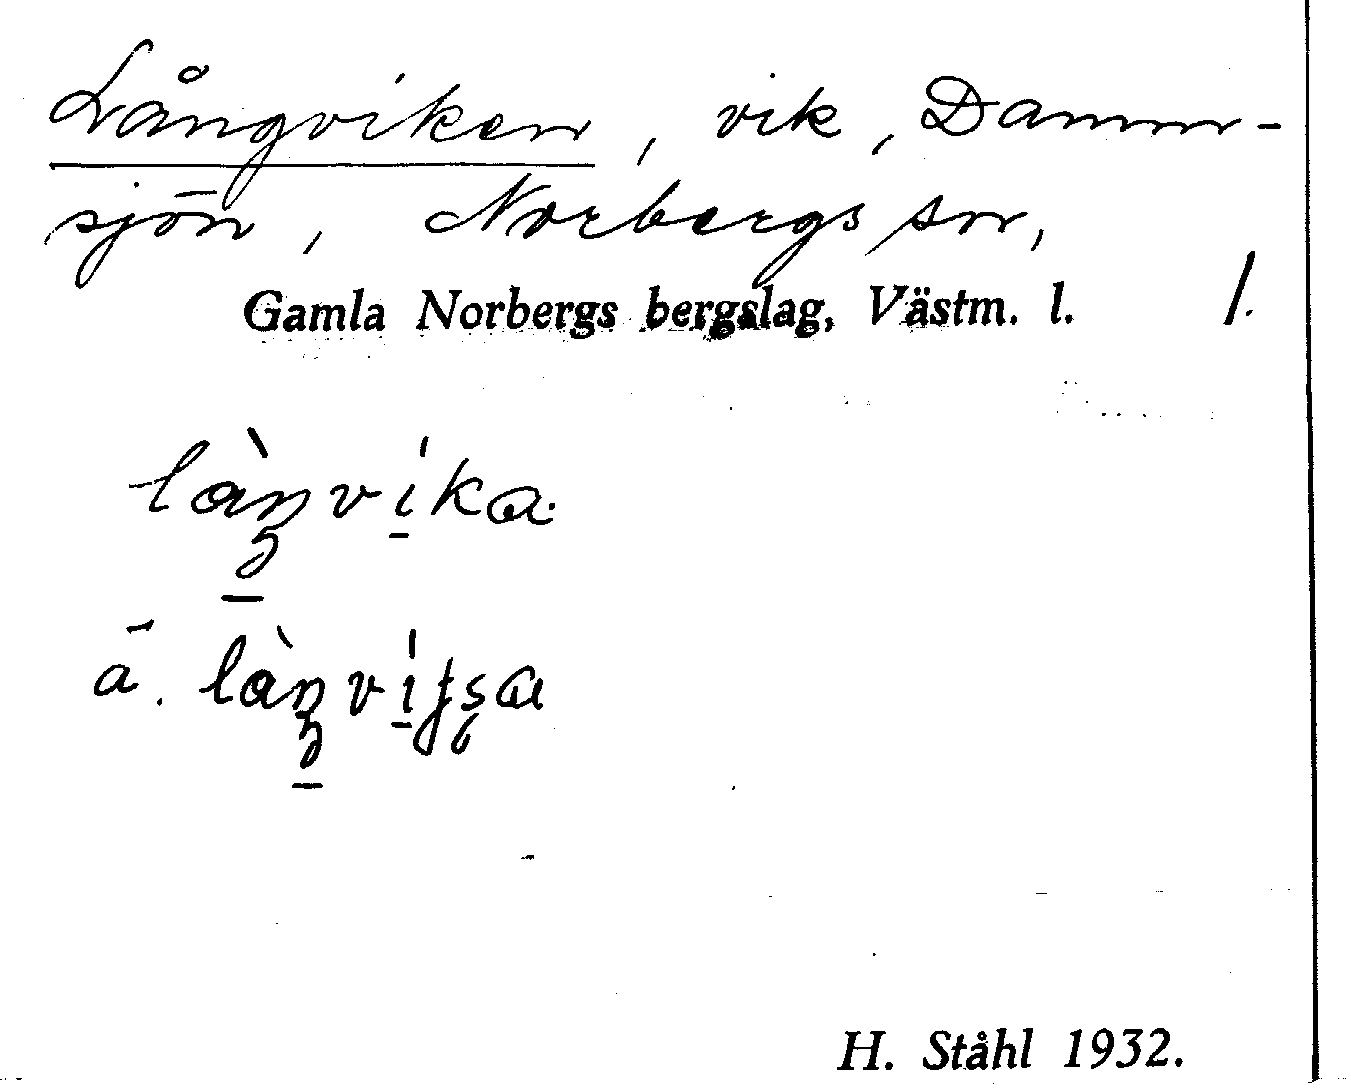 Långviken, vik, Damm-
sjön, Norbergs sn,
Gamla Norbergs bergslag, Västm. l. 1.
làŋvi̱ka
ā. làŋvi̱tʂa
H. Ståhl 1932.